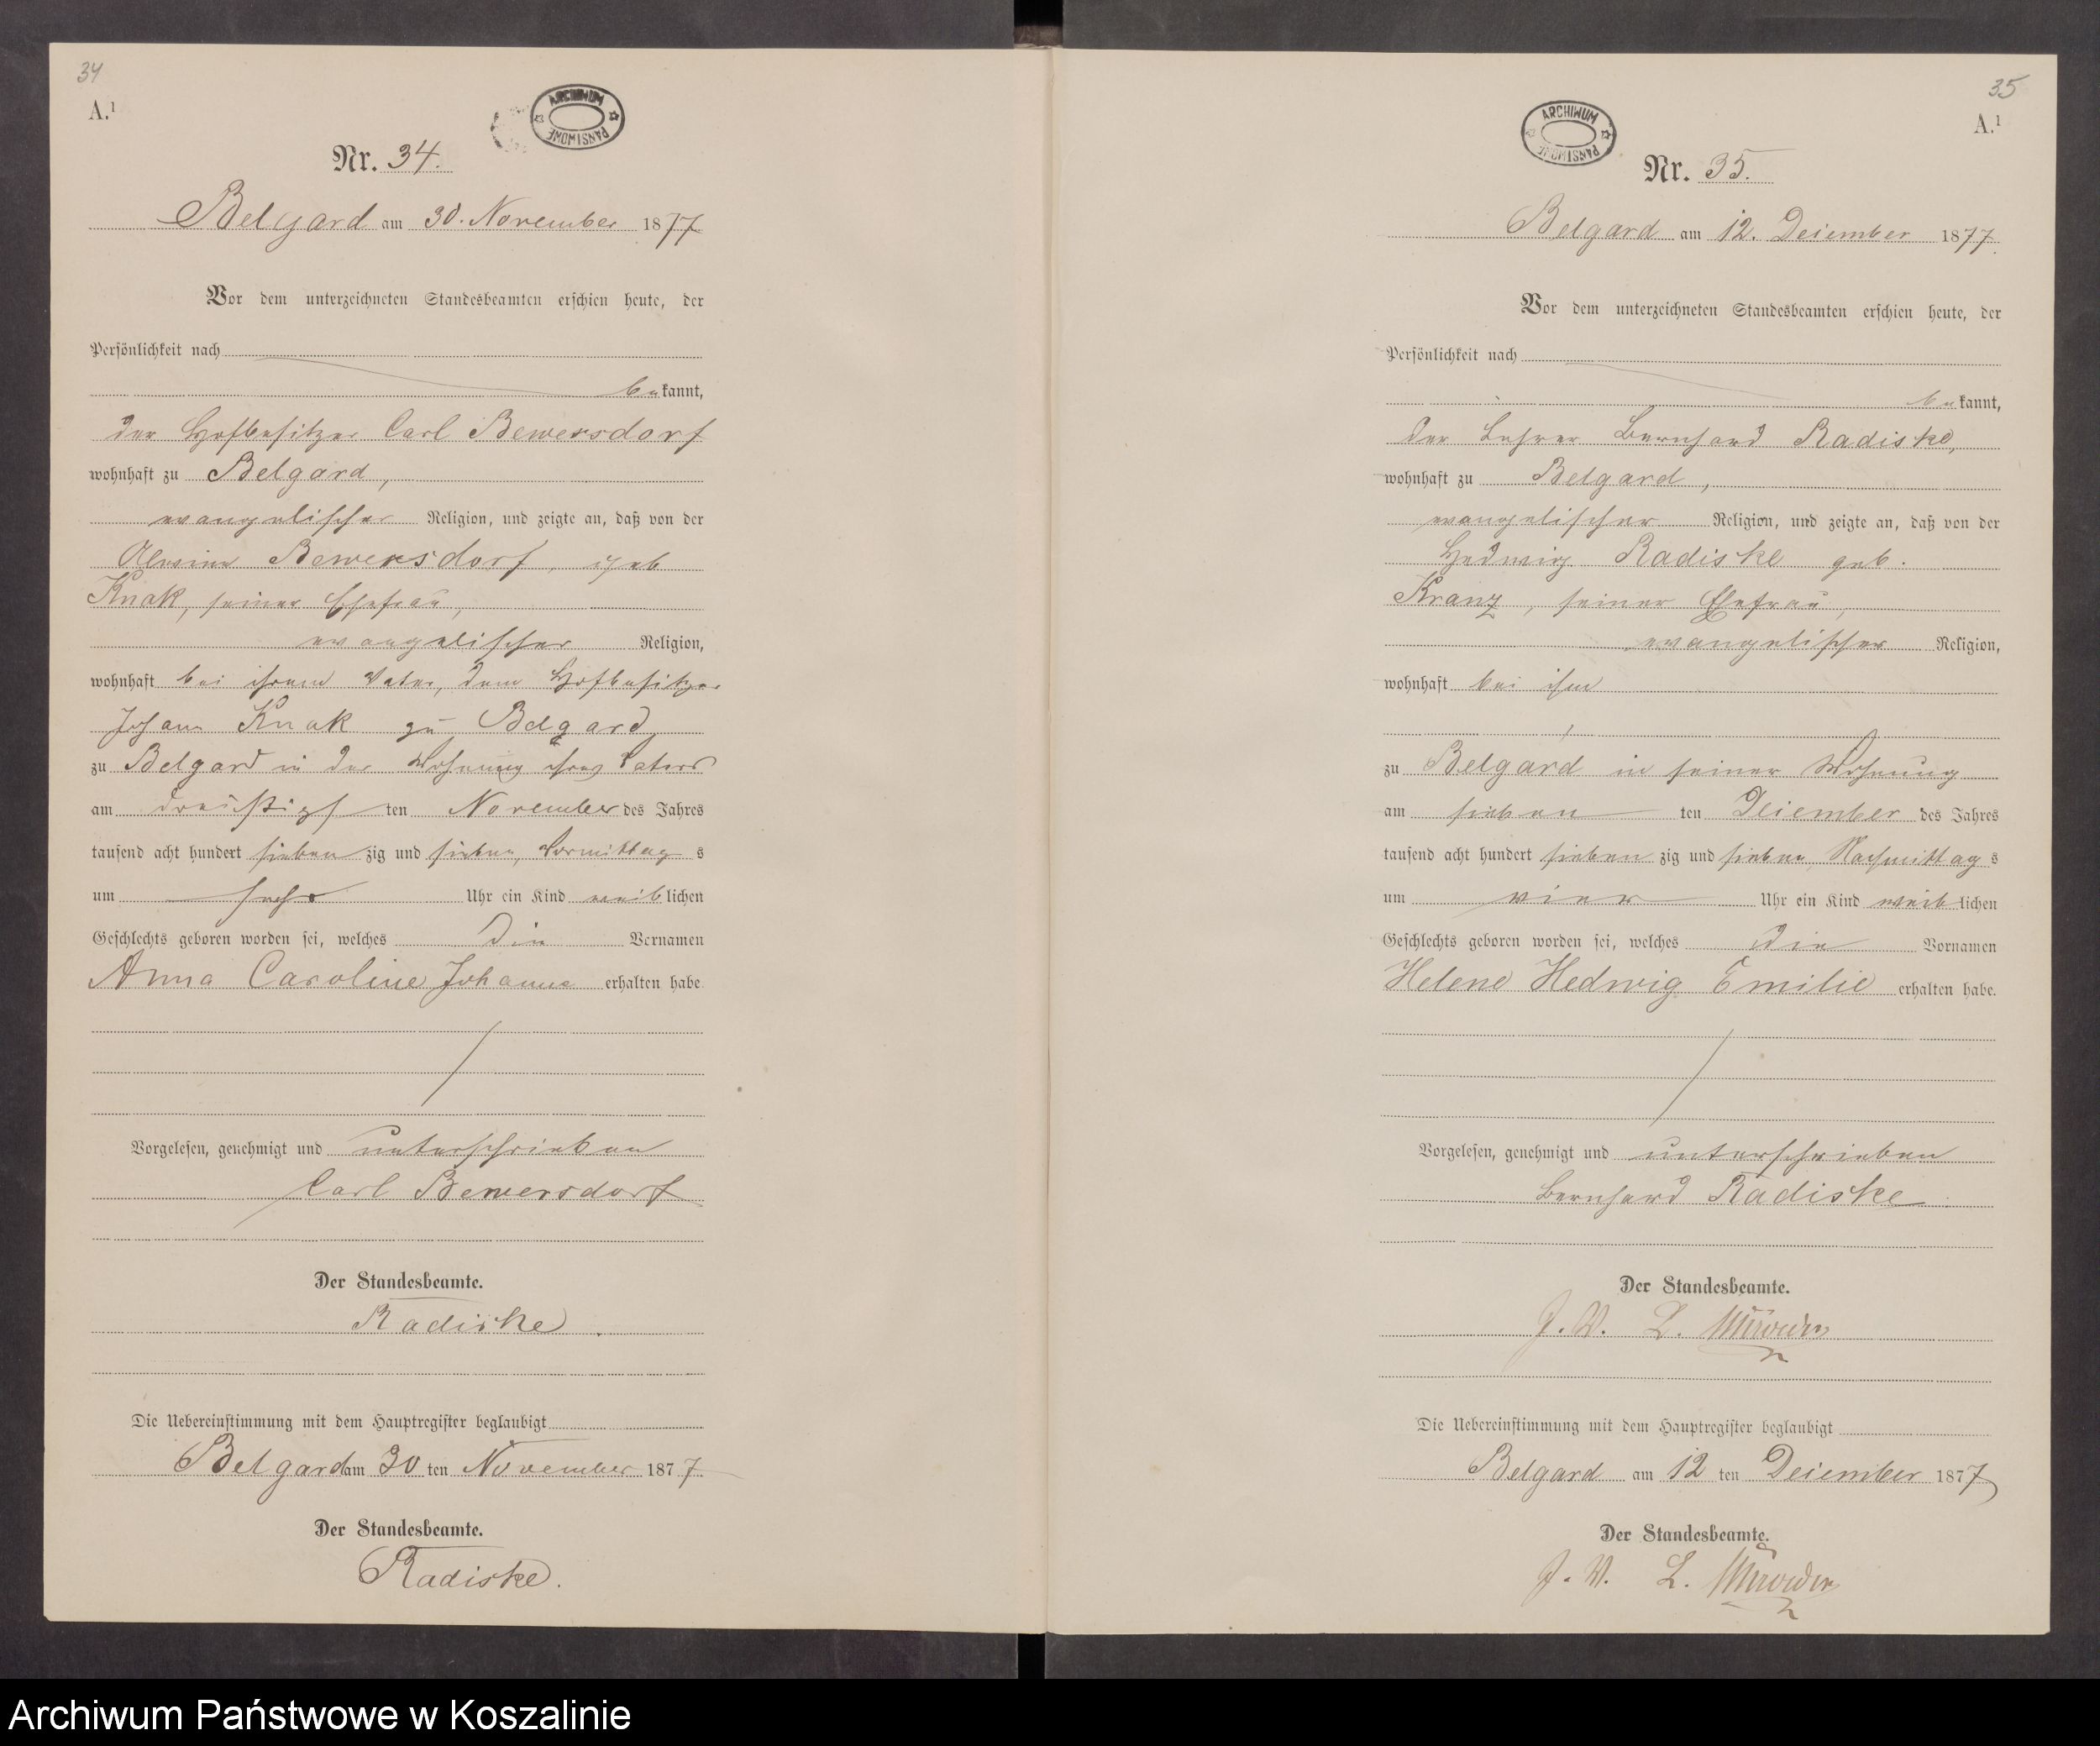 34
A.¹
ARCHIWUM PAŃSTWOWE
Nr. 34.
Belgard am 30. November 1877
Vor dem unterzeichneten Standesbeamten erschien heute, der
Persönlichkeit nach
bekannt,
der Hofbesitzer Carl Bewersdorf
wohnhaft zu Belgard,
evangelischer Religion, und zeigte an, daß von der
Bewersdorf, geb
Knak, seiner Ehefrau,
evangelischer Religion,
wohnhaft bei ihrem Vater, dem Hofbesitzer
Johann Knak zu Belgard,
zu Belgard in der Wohnung ihres Vaters
am dreißigsten November des Jahres
tausend acht hundert siebenzig und sieben, Vormittags
um sechs Uhr ein Kind weiblichen
Geschlechts geboren worden sei, welches die Vornamen
Anna Caroline Johanna erhalten habe.
Vorgelesen, genehmigt und unterschrieben
Carl Bewersdorf
Der Standesbeamte.
Radiske.
Die Uebereinstimmung mit dem Hauptregister beglaubigt
Belgard am 30 ten November 1877
Der Standesbeamte.
Radiske.
35
A.¹
ARCHIWUM PAŃSTWOWE
Nr. 35.
Belgard am 12. Dezember 1877.
Vor dem unterzeichneten Standesbeamten erschien heute, der
Persönlichkeit nach
bekannt,
der Lehrer Bernhard Radiske,
wohnhaft zu Belgard,
evangelischer Religion, und zeigte an, daß von der
Hedwig Radiske geb.
Kranz, seiner Ehefrau,
evangelischer Religion,
wohnhaft bei ihm
zu Belgard in seiner Wohnung
am sieben ten Dezember des Jahres
tausend acht hundert siebenzig und sieben, Nachmittags
um vier Uhr ein Kind weiblichen
Geschlechts geboren worden sei, welches die Vornamen
Helene Hedwig Emilie erhalten habe.
Vorgelesen, genehmigt und unterschrieben
Bernhard Radiske
Der Standesbeamte.
J. V. L.
Die Uebereinstimmung mit dem Hauptregister beglaubigt
Belgard am 12 ten Dezember 1877
Der Standesbeamte.
J. V. L.
Archiwum Państwowe w Koszalinie